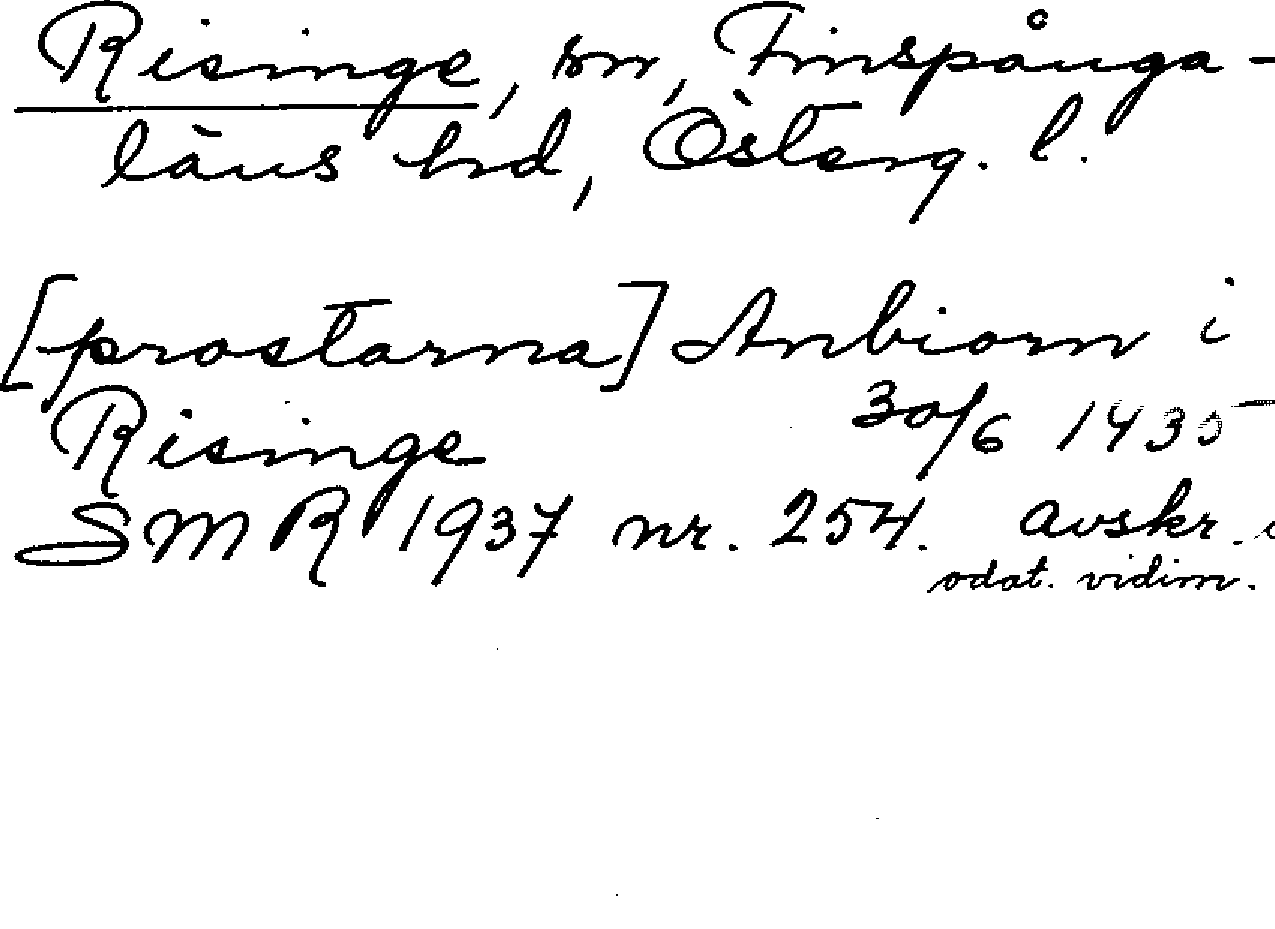 Risinge, sn, Finspånga-
läns hrd, Österg. l.
[prostarna] Anbiorn i
Risinge 30/6 1435
SMR 1937 nr. 254. avskr. i
odat. vidim.